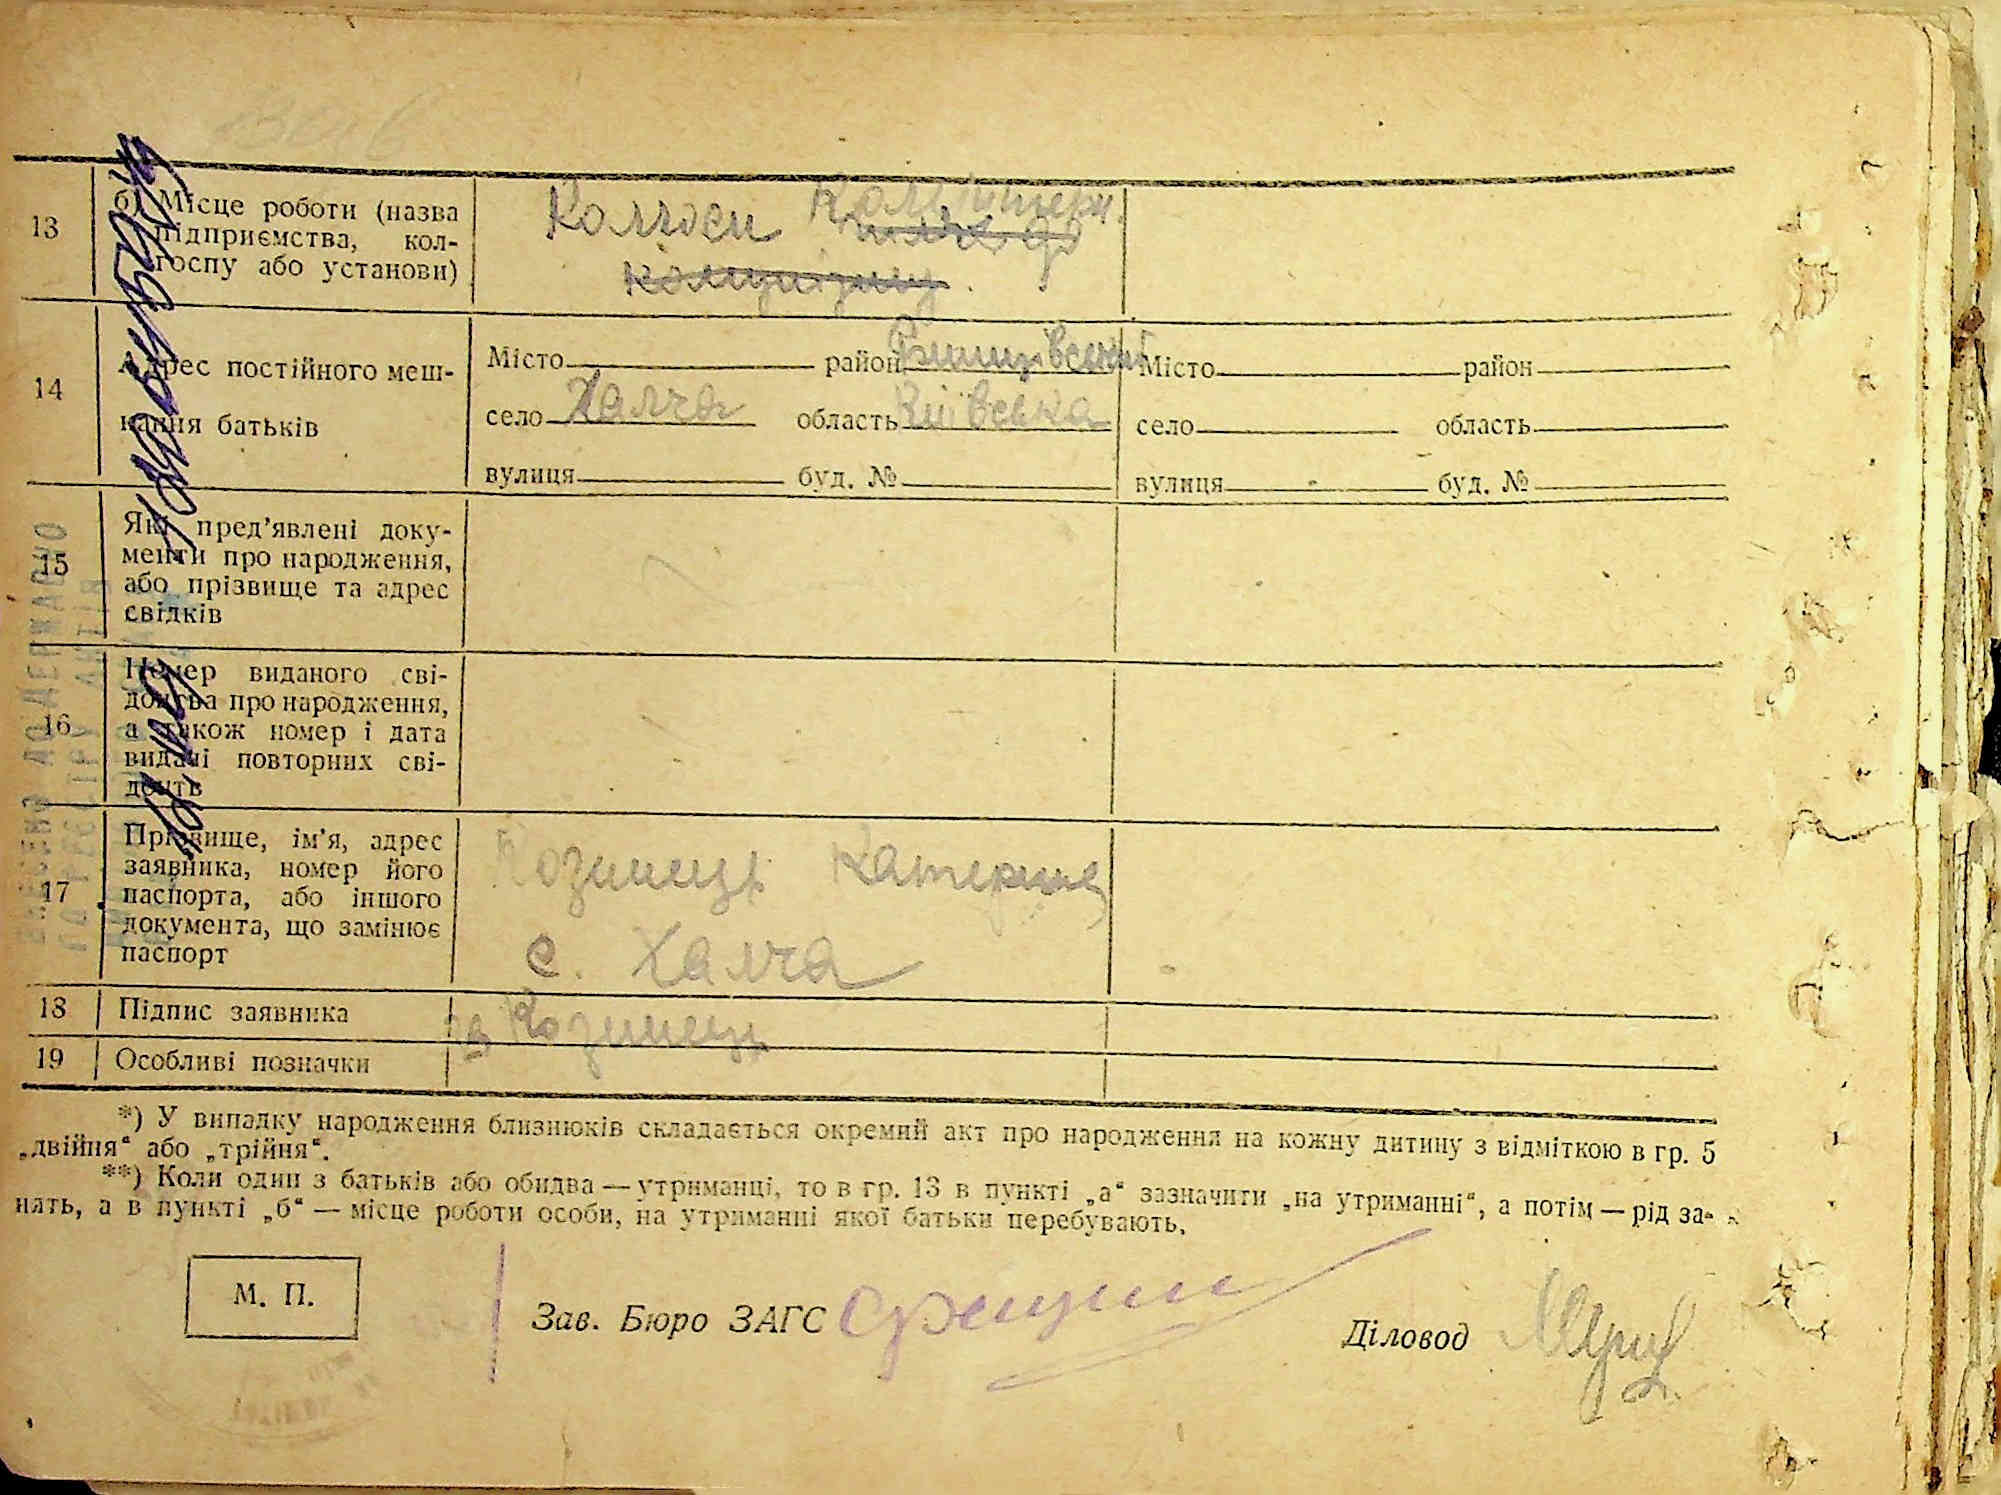 13
б) Місце роботи (назва
підприємства, кол-
госпу або установи)
Колгосп Комінтерн.
14
Адрес постійного меш-
кання батьків
Місто район Місто район
село Халча область Київська село область
вулиця буд. № вулиця буд. №
15
Які пред’явлені доку-
менти про народження,
або прізвище та адрес
свідків
16
Номер виданого сві-
доцтва про народження,
а також номер і дата
видачі повторних сві-
доцтв
17
Прізвище, ім’я, адрес
заявника, номер його
паспорта, або іншого
документа, що замінює
паспорт
Козинець Катерина
с. Халча
18 Підпис заявника
за Козинець
19 Особливі позначки
*) У випадку народження близнюків складається окремий акт про народження на кожну дитину з відміткою в гр. 5
„двійня“ або „трійня“.
**) Коли один з батьків або обидва — утриманці, то в гр. 13 в пункті „а“ зазначити „на утриманні“, а потім — рід за-
нять, а в пункті „б“ — місце роботи особи, на утриманні якої батьки перебувають.
М. П.
Зав. Бюро ЗАГС
Діловод